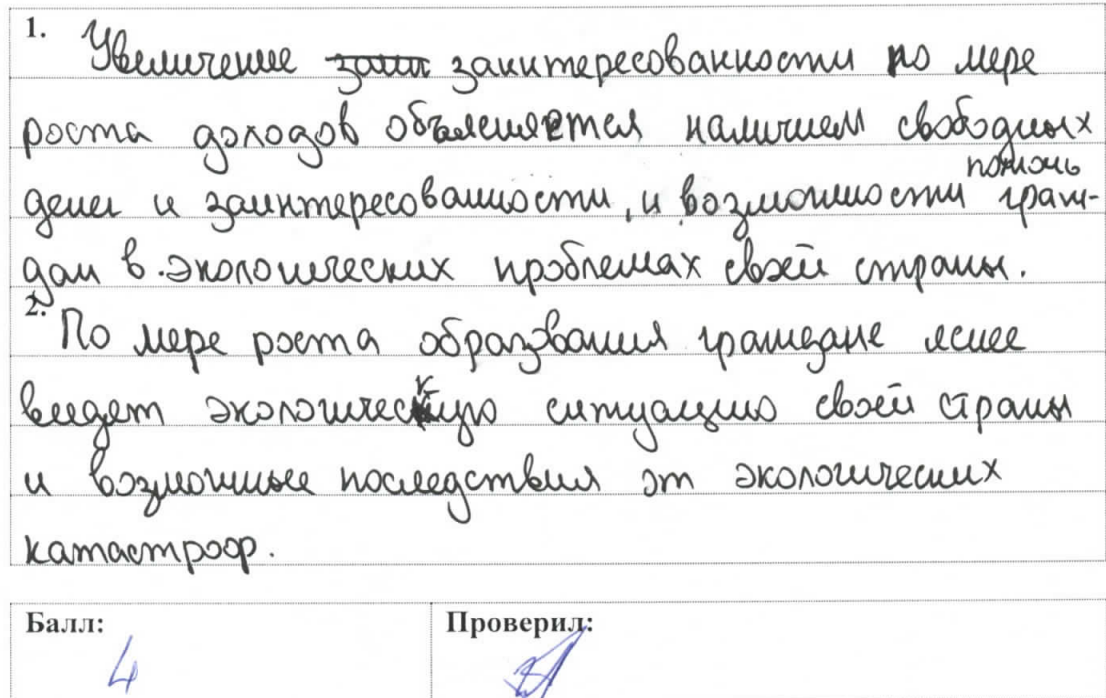 1. Увеличение заинтересованности по мере
роста доходов объясняется наличием свободных
денег и заинтересованности, и возможности помочь граж-
дан в экологических проблемах своей страны.
2. По мере роста образования граждане яснее
видят экологическую ситуацию своей страны
и возможные последствия от экологических
катастроф.
Балл: 4
Проверил: